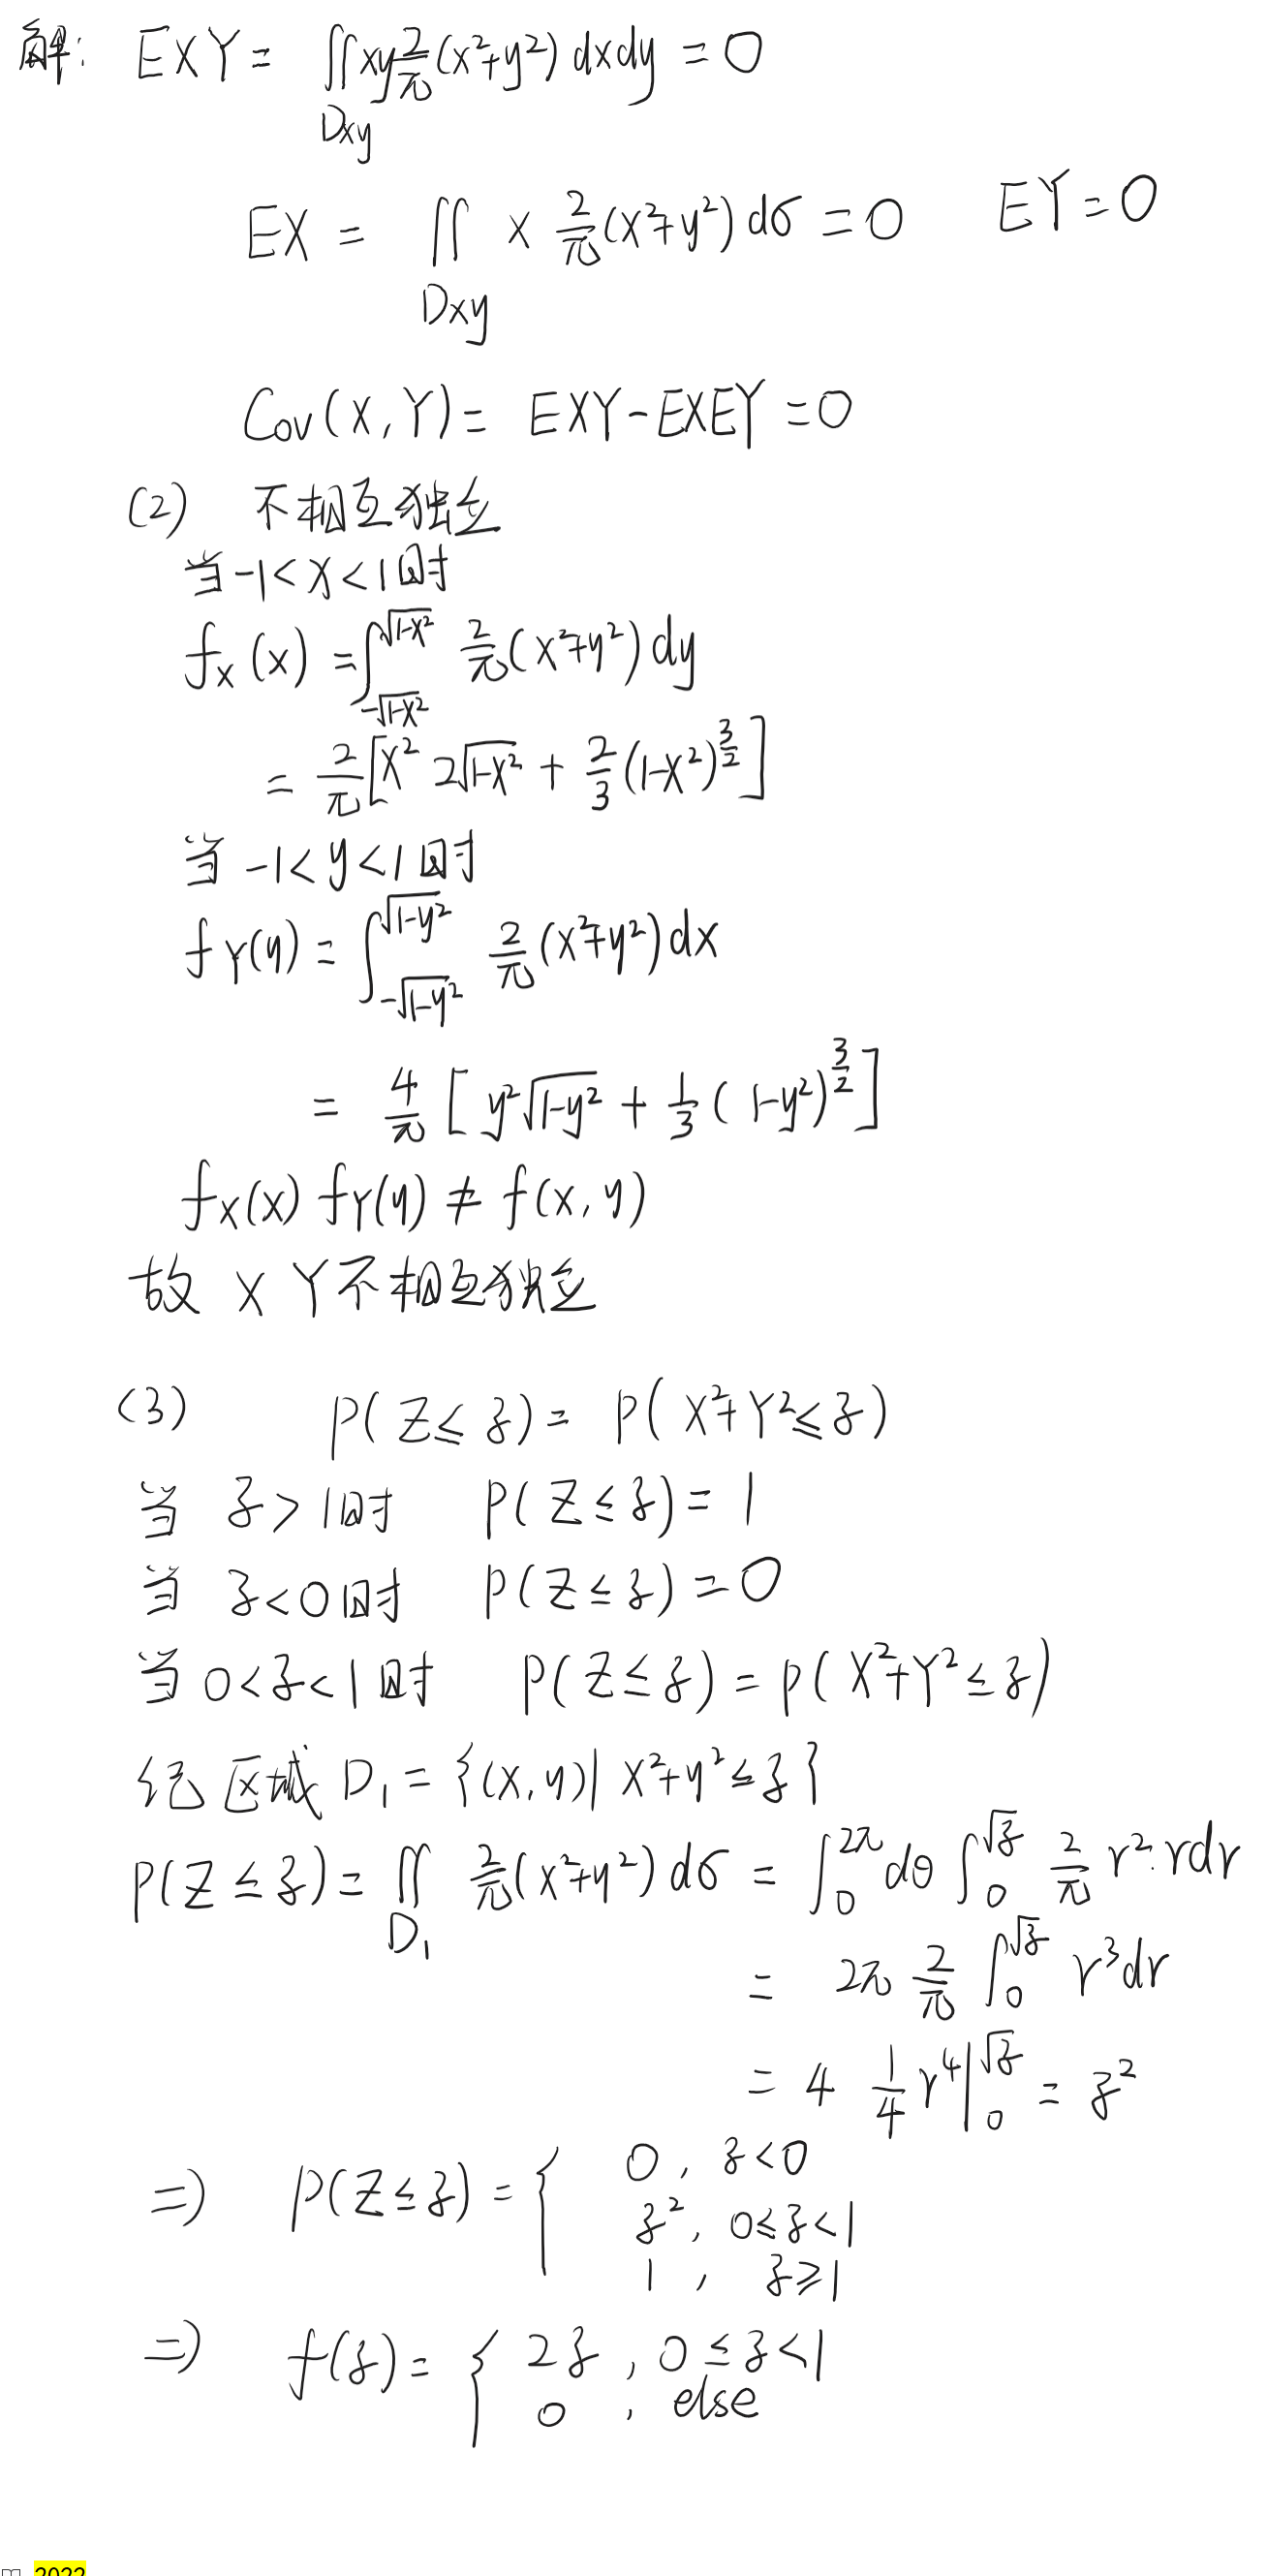 解: EXY = ∬_{Dxy} xy 2/π (x²+y²) dxdy = 0
EX = ∬_{Dxy} x 2/π (x²+y²) dσ = 0 EY = 0
Cov(X, Y) = EXY - EXEY = 0
(2) 不相互独立
当 -1 < x < 1 时
f_X(x) = ∫_{-√(1-x²)}^{√(1-x²)} 2/π (x²+y²) dy
= 2/π [x² 2√(1-x²) + 2/3 (1-x²)^{3/2}]
当 -1 < y < 1 时
f_Y(y) = ∫_{-√(1-y²)}^{√(1-y²)} 2/π (x²+y²) dx
= 4/π [y²√(1-y²) + 1/3 (1-y²)^{3/2}]
f_X(x) f_Y(y) ≠ f(x, y)
故 X Y 不相互独立
(3) P(Z ≤ z) = P(X²+Y² ≤ z)
当 z > 1 时 P(Z ≤ z) = 1
当 z < 0 时 P(Z ≤ z) = 0
当 0 < z < 1 时 P(Z ≤ z) = P(X²+Y² ≤ z)
记区域 D₁ = {(x, y) | x²+y² ≤ z}
P(Z ≤ z) = ∬_{D₁} 2/π (x²+y²) dσ = ∫_0^{2π} dθ ∫_0^{√z} 2/π r²·rdr
= 2π 2/π ∫_0^{√z} r³dr
= 4 1/4 r⁴|_0^{√z} = z²
⇒ P(Z ≤ z) = { 0 , z < 0
z² , 0 ≤ z < 1
1 , z ≥ 1
⇒ f(z) = { 2z , 0 ≤ z < 1
0 , else
2022